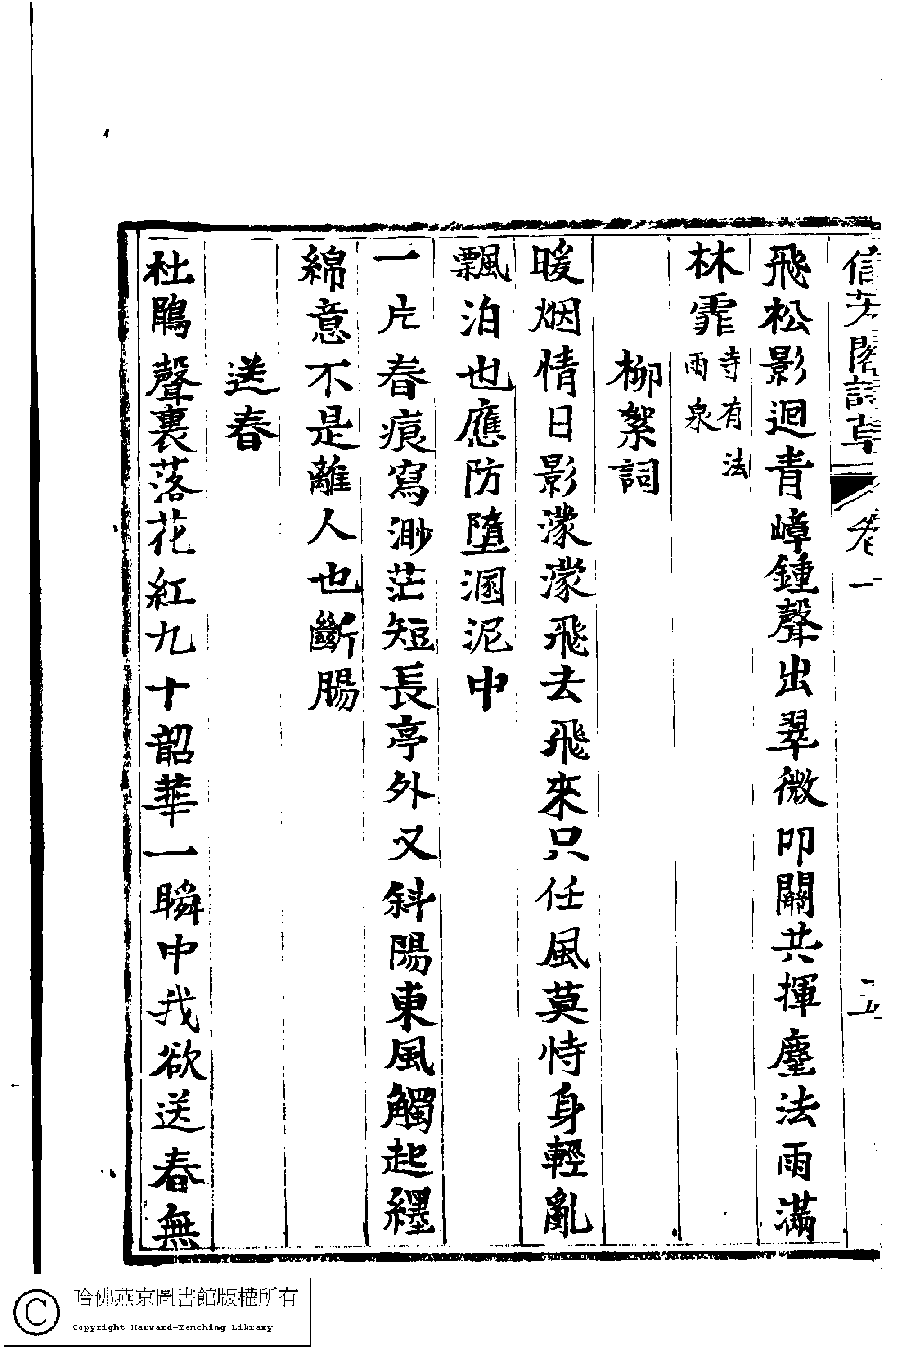 信芳閣詩草 卷一 五
飛松影迴青嶂鍾聲出翠微叩關共揮麈法雨滿
林霏寺有法雨泉
柳絮詞
暖烟情日影濛濛飛去飛來只任風莫恃身輕亂
飄泊也應防墮溷泥中
一片春痕寫渺茫短長亭外又斜陽東風觸起纏
綿意不是離人也斷腸
送春
杜鵑聲裏落花紅九十韶華一瞬中我欲送春無
哈佛燕京圖書館版權所有
Copyright Harvard-Yenching Library